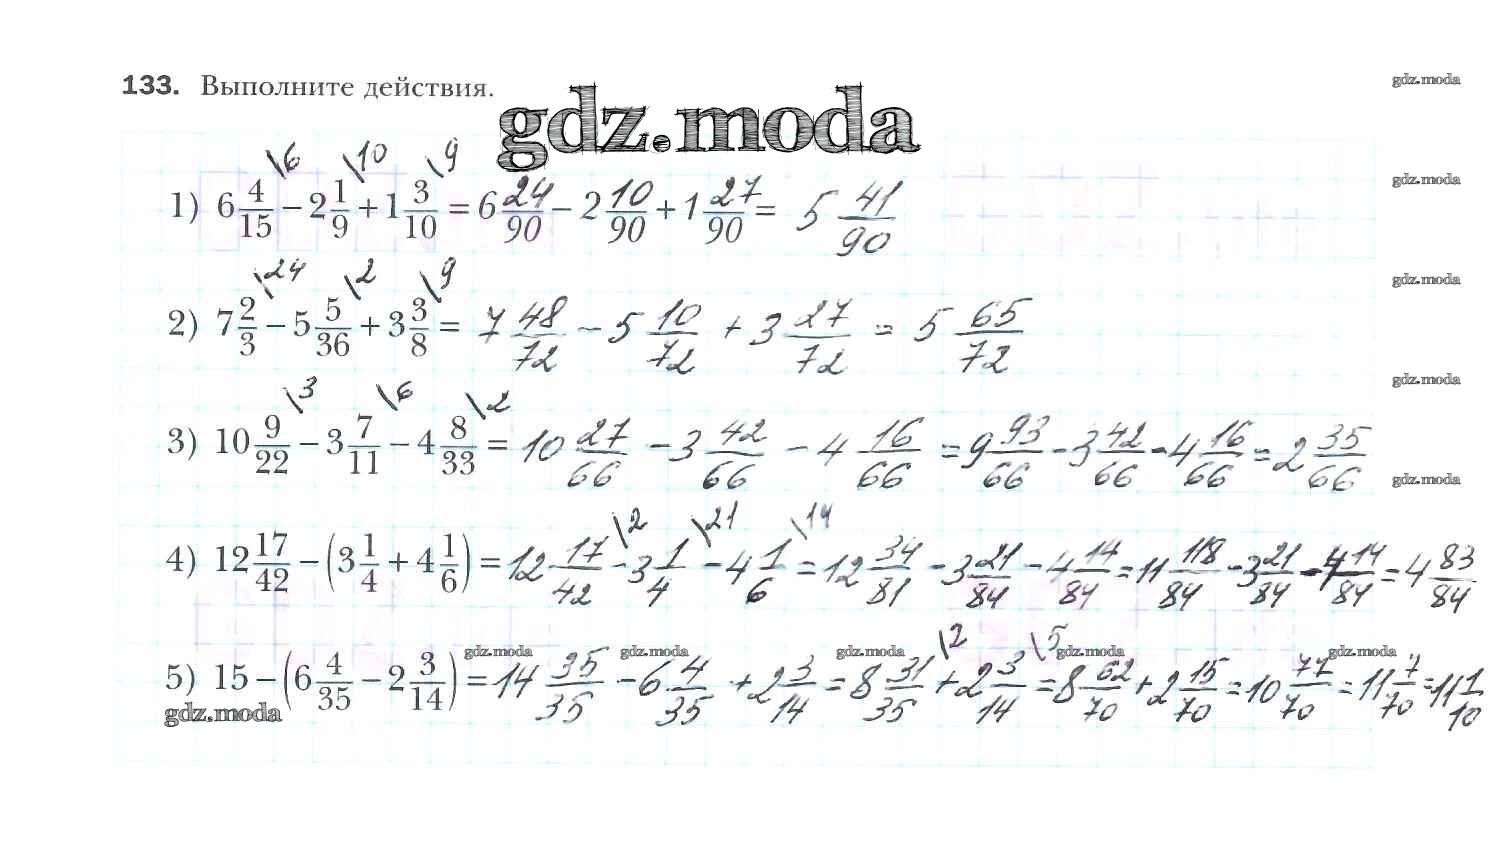 133. Выполните действия.
gdz.moda
gdz.moda
\6 \10 \9
1) 6 4/15 − 2 1/9 + 1 3/10 = 6 24/90 − 2 10/90 + 1 27/90 = 5 41/90
gdz.moda
\24 \2 \9
2) 7 2/3 − 5 5/36 + 3 3/8 = 7 48/72 − 5 10/72 + 3 27/72 = 5 65/72
gdz.moda
gdz.moda
\3 \6 \2
3) 10 9/22 − 3 7/11 − 4 8/33 = 10 27/66 − 3 42/66 − 4 16/66 = 9 93/66 − 3 42/66 − 4 16/66 = 2 35/66
gdz.moda
\2 \21 \14
4) 12 17/42 − (3 1/4 + 4 1/6) = 12 17/42 − 3 1/4 − 4 1/6 = 12 34/81 − 3 21/84 − 4 14/84 = 11 118/84 − 3 21/84 − 4 14/84 = 4 83/84
\2 \5
gdz.moda gdz.moda gdz.moda gdz.moda gdz.moda
5) 15 − (6 4/35 − 2 3/14) = 14 35/35 − 6 4/35 + 2 3/14 = 8 31/35 + 2 3/14 = 8 62/70 + 2 15/70 = 10 77/70 = 11 7/70 = 11 1/10
gdz.moda